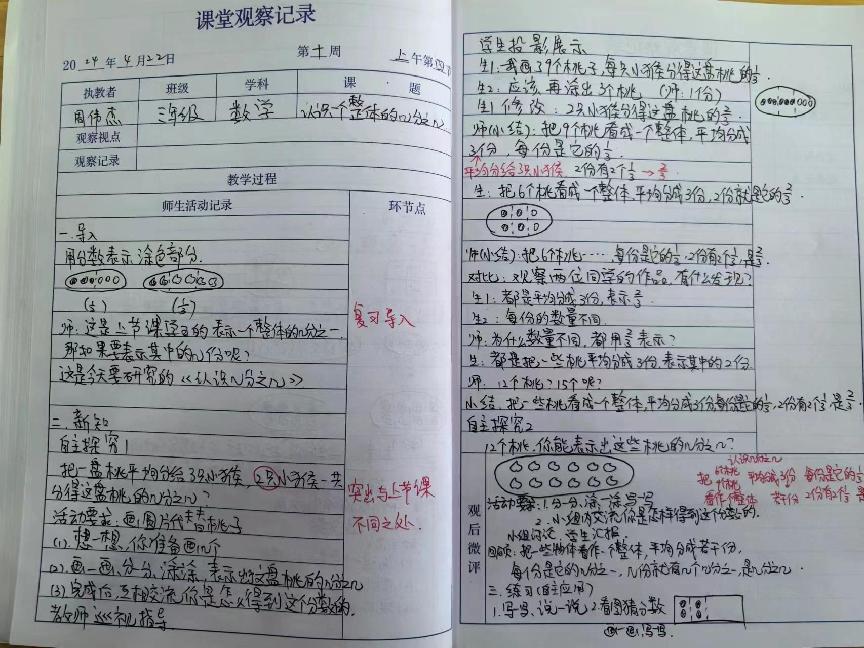 课堂观察记录
2024年4月22日 第十周 上午第四节
执教者 班级 学科 课题
周伟杰 三年级 数学 认识一个整体的几分之几
观察视点
观察记录
教学过程
师生活动记录 环节点
一.导入
用分数表示涂色部分.
师:这是上节课学习的表示一个整体的几分之一.
那如果要表示其中的几份呢?
这是今天要研究的《认识几分之几》
复习导入
二.新知
自主探究1
把一盘桃平均分给3只小猴,2只小猴一共
分得这盘桃的几分之几?
突出与上节课
不同之处.
活动要求:画○图片代替桃子
(1).想一想,你准备画几个
(2).画一画、分分、涂涂,表示出这盘桃的几分之几
(3)完成后,互相交流你是怎么得到这个分数的.
教师巡视指导
学生投影展示
生1:我画了9个桃子,每只小猴分得这盘桃的1/3.
生2:应该再涂出3个桃,(师:1份)
生1修改:2只小猴分得这盘桃的2/3.
师(小结):把9个桃看成一个整体,平均分成
3份,每份是它的1/3.
平均分给3只小猴 2份有2个1/3→2/3
生:把6个桃看成一个整体,平均分成3份,2份就是它的2/3.
师(小结):把6个桃……每份是它的1/3,2份有2个1/3,是2/3
对比:观察两位同学的作品,有什么发现?
生1:都是平均分成3份,表示2/3.
生2:每份的数量不同.
师:为什么数量不同,都用2/3表示?
生:都是把一些桃平均分成3份,表示其中的2份.
师:12个桃?15个呢?
小结:把一些桃看成一个整体,平均分成3份,每份是它的1/3,2份有2个1/3,是2/3.
自主探究2
12个桃,你能表示出这些桃的几分之几?
认识几分之几
把 6个桃 平均分成3份 每份是它的1/3
9个桃
看作个整体 若干份 2份有2个1/3 是
观后微评
活动要求:1.分一分、涂一涂、写一写
2.小组内交流你是怎样得到这个数的.
小组讨论,学生汇报.
回顾:把一些物体看作一个整体,平均分成若干份,
每份是它的几分之一,几份就有几个几分之一,是几分之几.
三.练习(自主应用)
1.写一写,说一说 2.看图猜分数